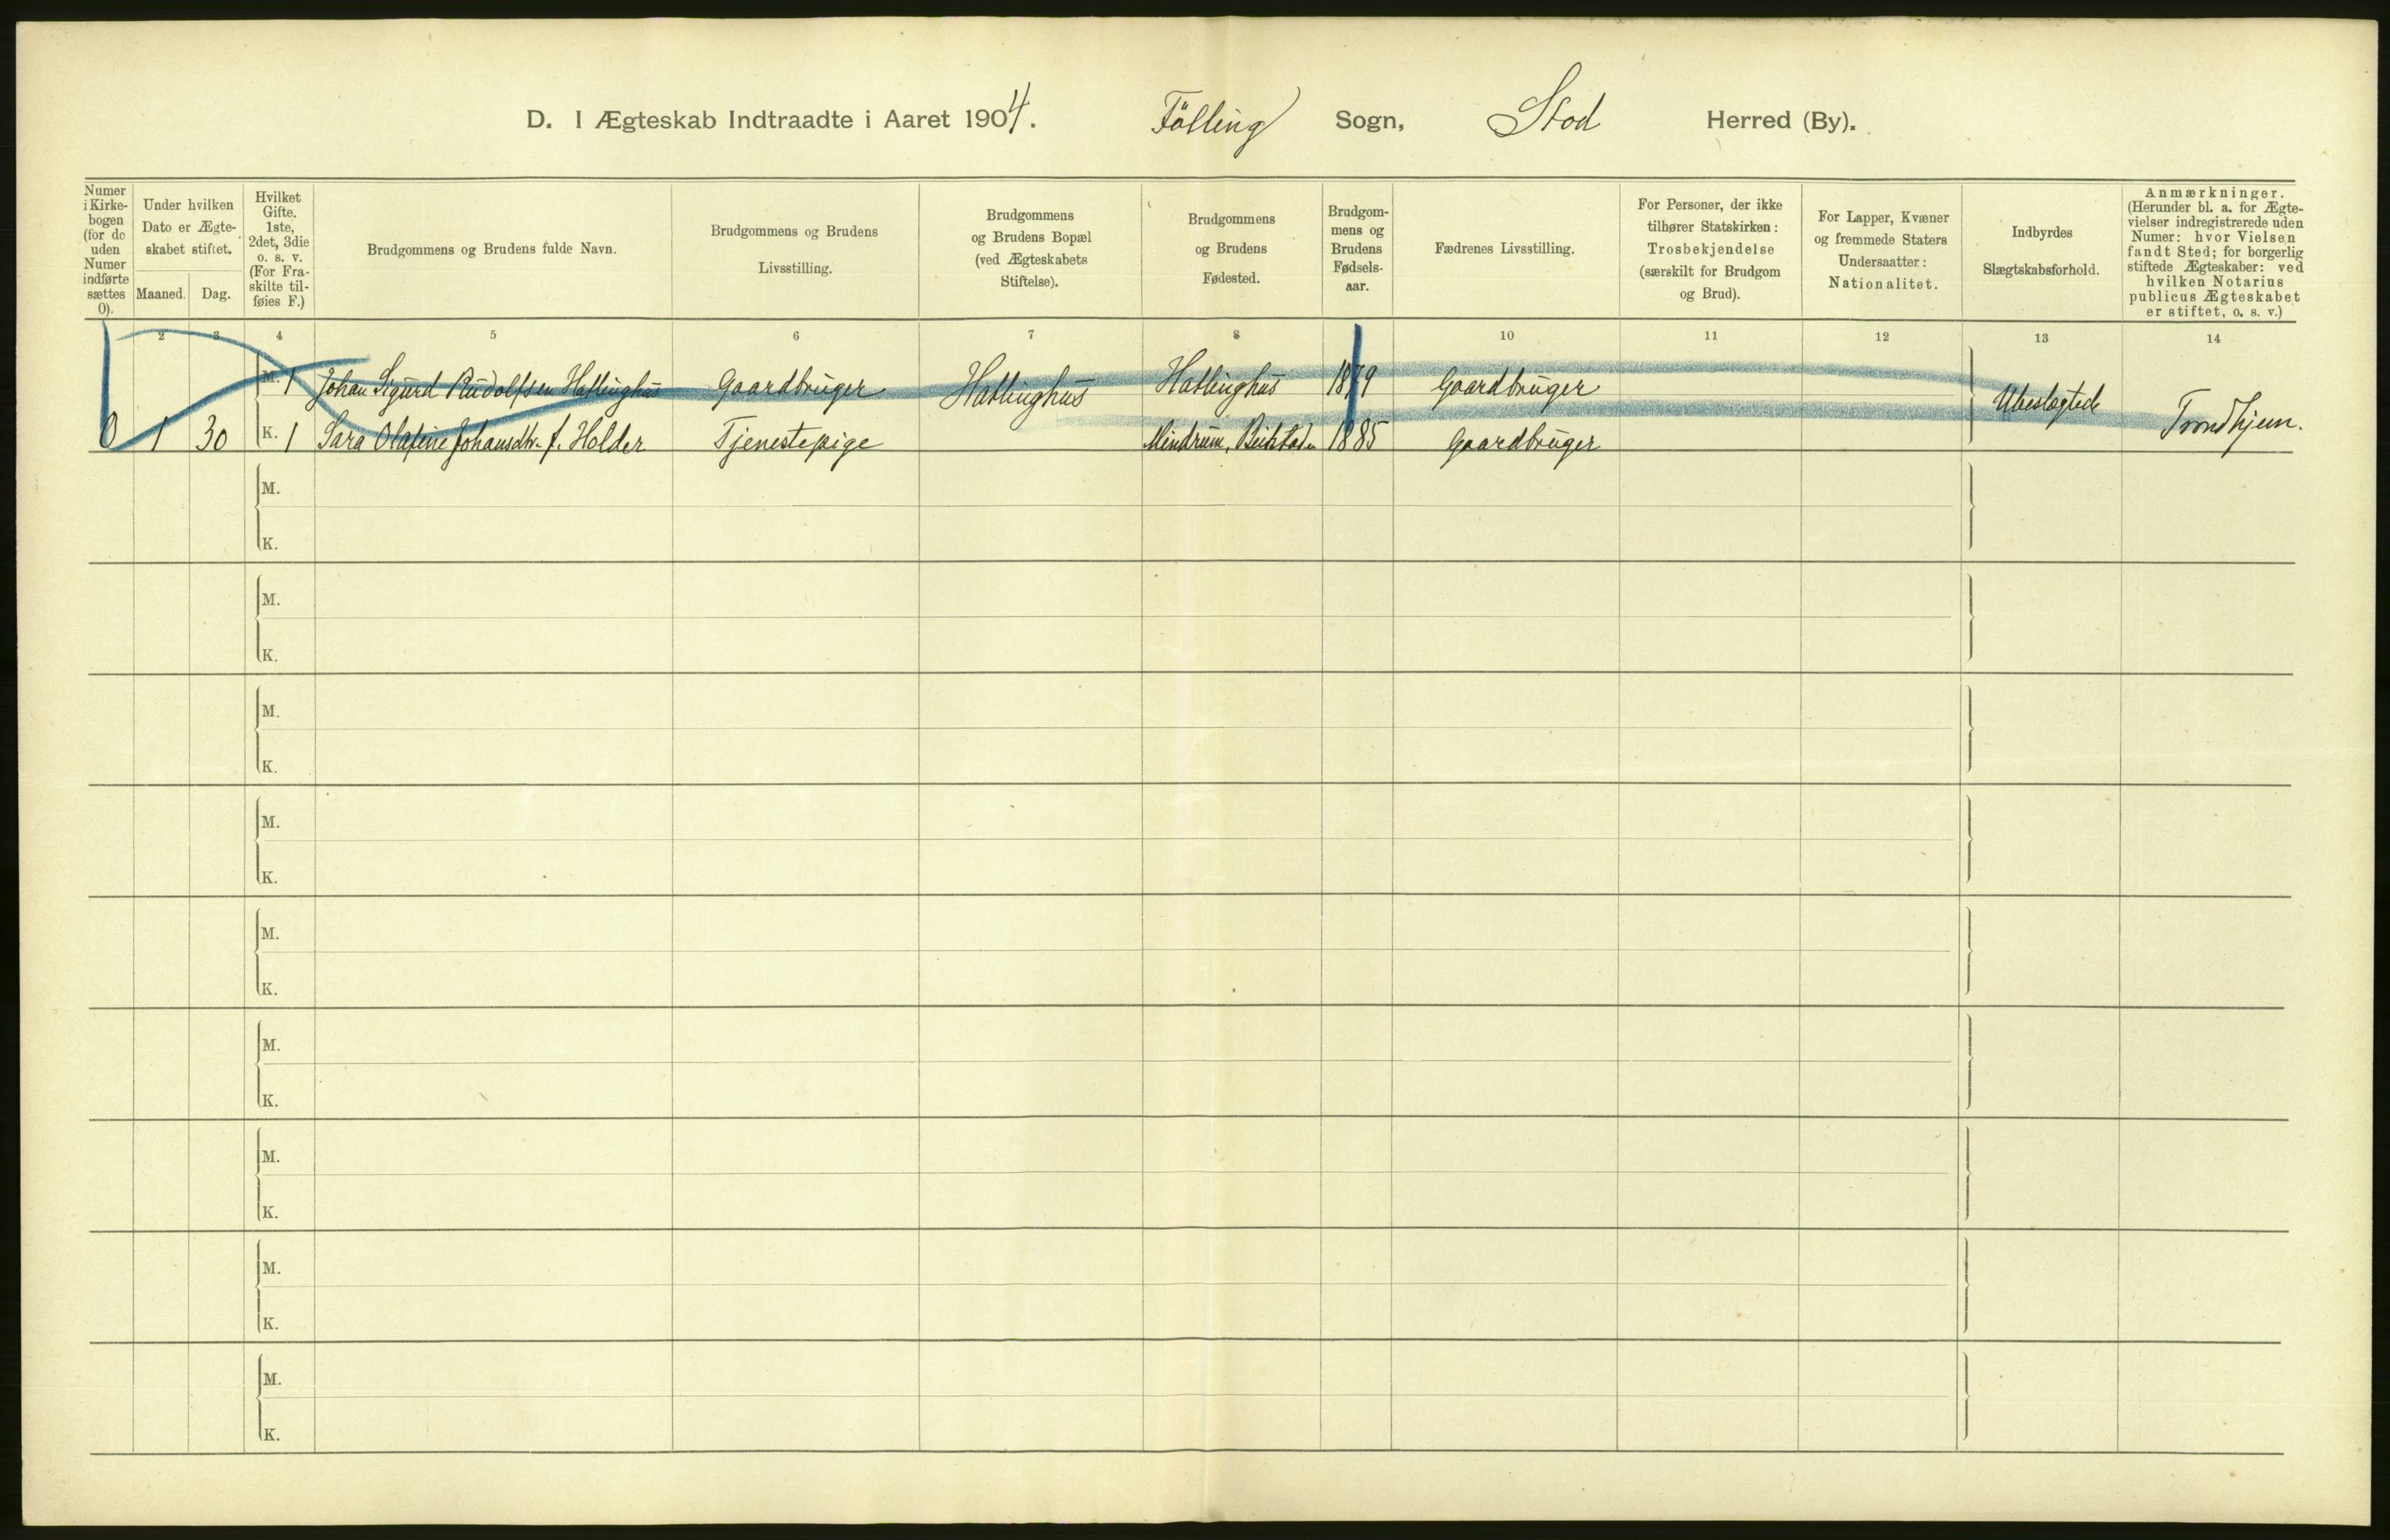 D. I Ægteskab Indtraadte i Aaret 1904. Følling Sogn, Stod Herred (By).
Numer
i Kirke-
bogen
(for de
uden
Numer
indførte
sættes
0).
Under hvilken
Dato er Ægte-
skabet stiftet.
Maaned. Dag.
Hvilket
Gifte.
1ste,
2det, 3die
o. s. v.
(For Fra-
skilte til-
føies F.)
Brudgommens og Brudens fulde Navn.
Brudgommens og Brudens
Livsstilling.
Brudgommens
og Brudens Bopæl
(ved Ægteskabets
Stiftelse).
Brudgommens
og Brudens
Fødested.
Brudgom-
mens og
Brudens
Fødsels-
aar.
Fædrenes Livsstilling.
For Personer, der ikke
tilhører Statskirken:
Trosbekjendelse
(særskilt for Brudgom
og Brud).
For Lapper, Kvæner
og fremmede Staters
Undersaatter:
Nationalitet.
Indbyrdes
Slægtskabsforhold.
Anmærkninger.
(Herunder bl. a. for Ægte-
vielser indregistrerede uden
Numer: hvor Vielsen
fandt Sted; for borgerlig
stiftede Ægteskaber: ved
hvilken Notarius
publicus Ægteskabet
er stiftet, o. s. v.)
2 3 4 5 6 7 8 10 11 12 13 14
M. 1 Johan Sigurd Rudolfsen Hatlinghus Gaardbruger Hatlinghus Hatlinghus 1879 Gaardbruger Ubeslægtede
0 1 30 K. 1 Sara Olafine Johansdtr. f. Holder Tjenestepige 1885 Gaardbruger Trondhjem.
M.
K.
M.
K.
M.
K.
M.
K.
M.
K.
M.
K.
M.
K.
M.
K.
M.
K.